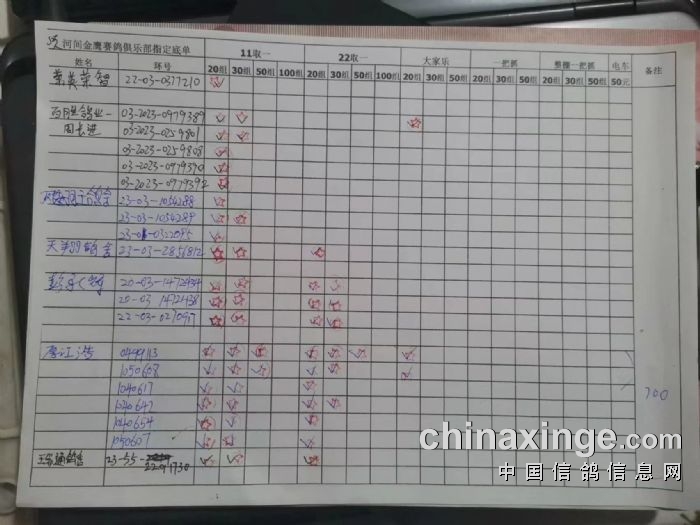 河间金鹰赛鸽俱乐部指定底单
姓名 环号 11取一 22取一 大家乐 一把抓 整棚一把抓 电车 备注
20组 30组 50组 100组 20组 30组 50组 100组 20组 30组 50组 20组 30组 50组 20组 30组 50组 50元
22-03-0377210
03-2023-0979389
周长进 03-2023-0259801
03-2023-0259808
03-2023-0979390
03-2023-0979392
23-03-1054288
23-03-1054289
23-03-0322095
天羽鸽舍 23-03-2856812
20-03-1472434
20-03 1472438
22-03-0270917
0499113
1050608
1040617
1040647
700
1040654
1050607
23-55-
22091730
chinaxinge.com
中国信鸽信息网